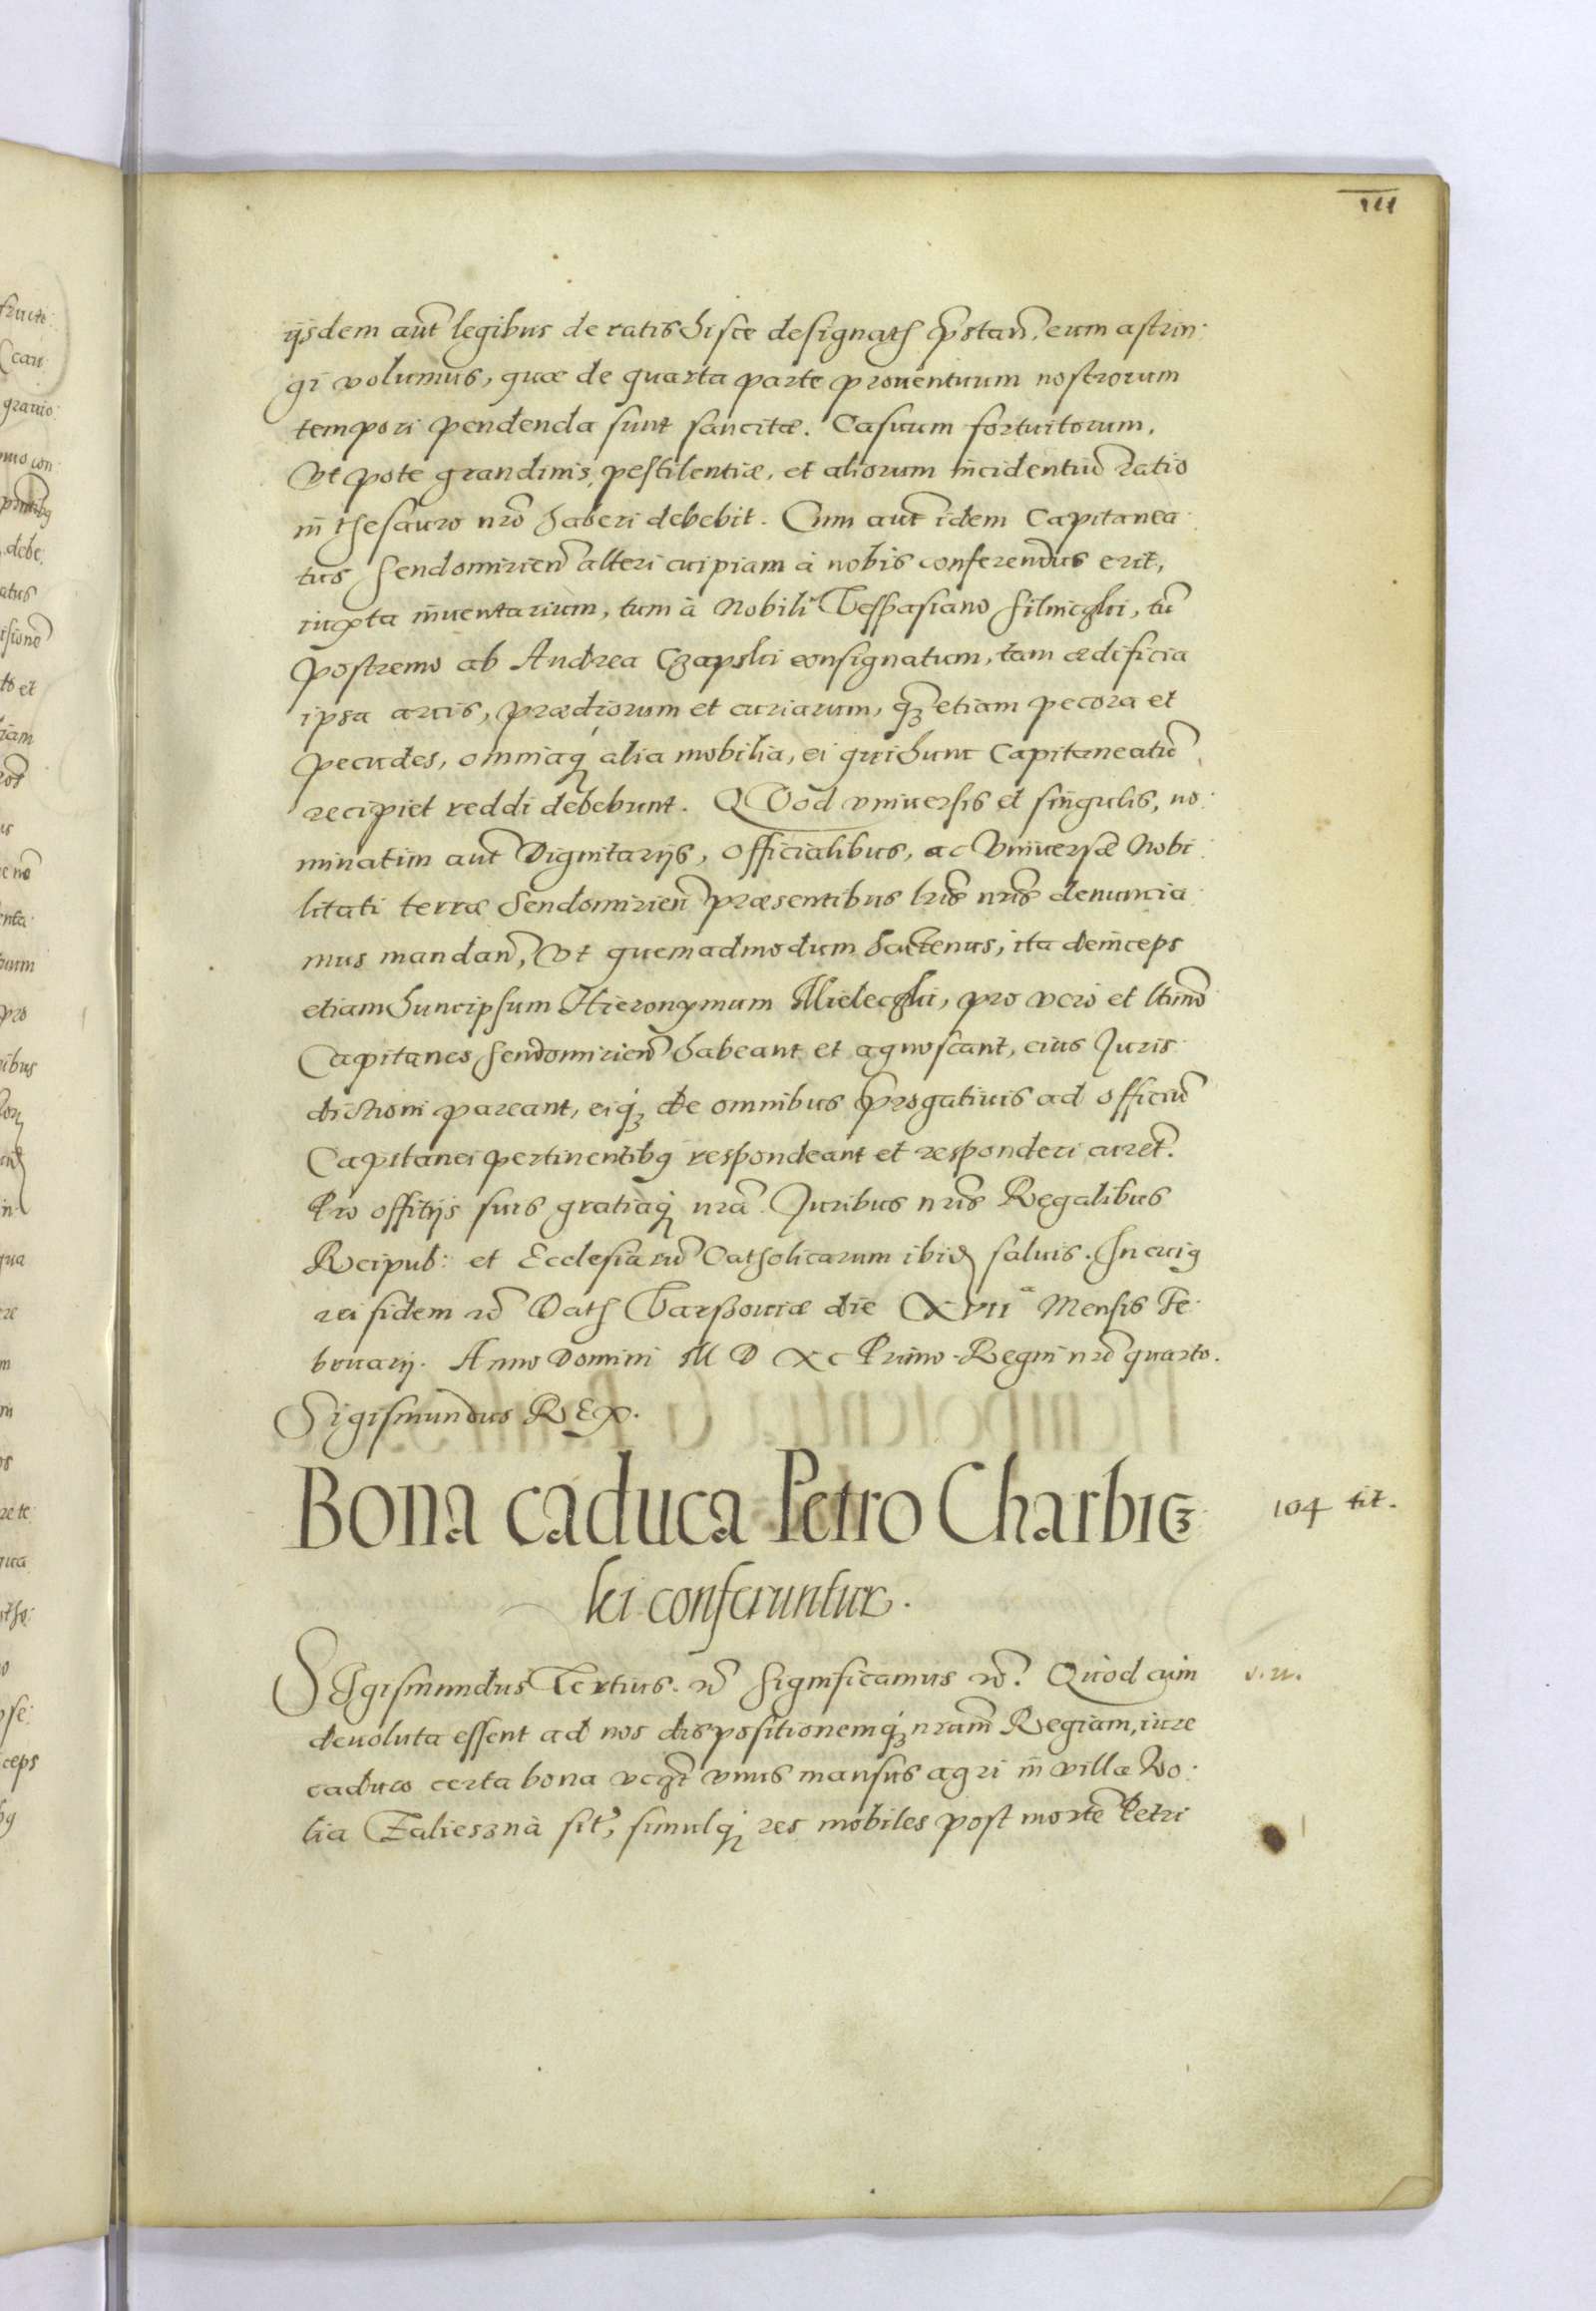 111
ijsdem aut̃ legibus de ratis hisce designatis p̃stan̄, eum astrin:
gi volumus, quæ de quarta parte prouentuum nostrorum
tempori pendenda sunt sancitæ. Casuum fortuitorum,
Vt pote grandinis, pestilentiæ, et aliorum incidentiũ ratio
in thesauro nr̃o haberi debebit. Cum aut̃ idem Capitanea:
tus Sendomirien̄ alteri cuipiam à nobis conferendus erit,
iuxta inuentarium, tum à Nobili Vespasiano Silniczki, tũ
postremo ab Andrea Czapski consignatum, tam ædificia
ipsa arcis, prædiorum et curiarum, q̃ꝫ etiam pecora et
pecudes, omniaq́ꝫ alia mobilia, ei qui hunc Capitaneatũ
recipiet reddi debebunt. QVod vniuersis et singulis, no:
minatim aut̃ Dignitarijs, Officialibus, ac Vniuersæ Nobi:
litati terræ Sendomirien̄ præsentibus lr̃is nr̃is denuncia:
mus mandan̄, Vt quemadmodum hactenus, ita deinceps
etiam hunc ipsum Hieronymum Mieleczki, pro vero et ltimõ
Capitaneo Sendomirien̄ habeant et agnoscant, eius Juris:
dictioni pareant, eiq́ꝫ de omnibus p̃rogatiuis ad officiũ
Capitanei pertinentibꝰ respondeant et responderi curet̃.
Pro offitijs suis gratiaq́ꝫ nr̃a. Juribus nr̃is Regalibus
Reipub: et Ecclesiarũ Catholicarum ibid̃ saluis. In cuiꝰ
rei fidem ẽ Datꝭ Varssouiæ die XVIIª Mensis Fe:
bruarij. Anno Domini M D XC Primo. Regni nr̃i quarto.
Sigismundus REX.
Bona caduca Petro Charbicz
ki conferuntur.
104 tit.
SIgismundus Tertius. ẽ Significamus ẽ. Quod cum
deuoluta essent ad nos dispositionemq́ꝫ nr̃am Regiam, iure
caduco certa bona vcꝫt vnus mansus agri in villæ Wo:
lia Zalieszna sit̃, simulq́ꝫ res mobiles post mortẽ Petri